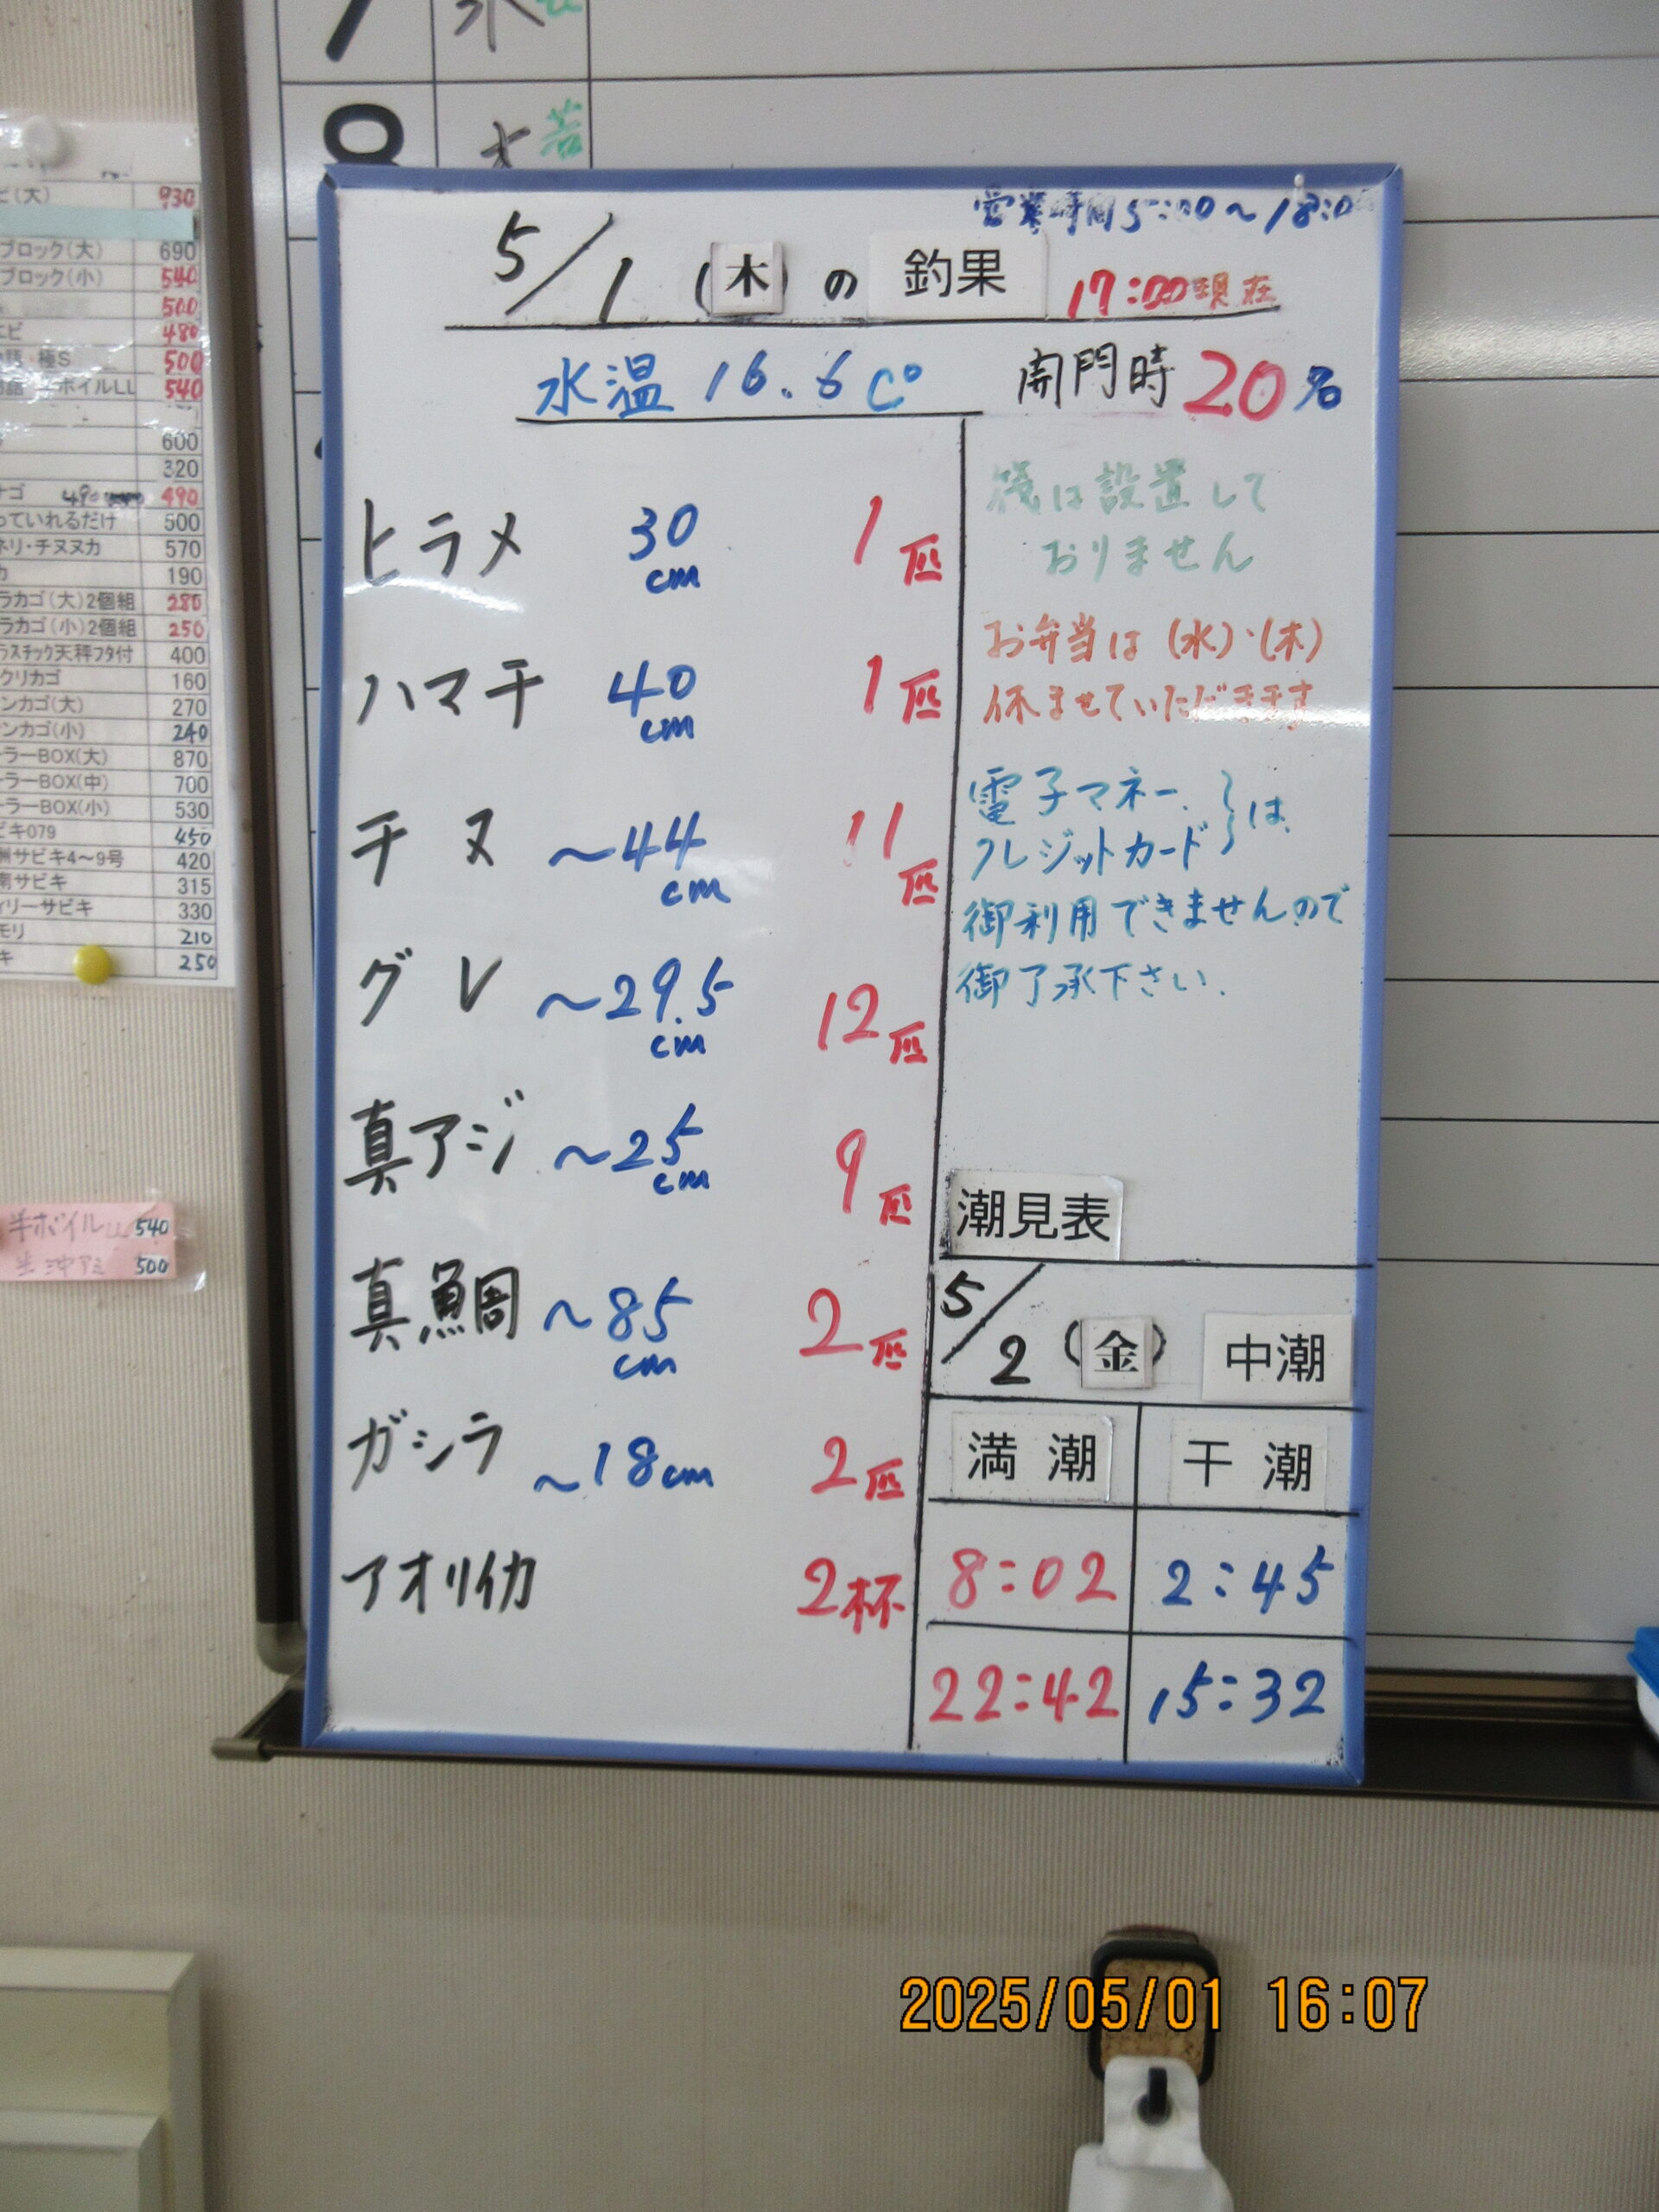 営業時間5:00～18:0
5/1(木)の釣果 17:00現在
水温 16.6C° 開門時20名
ヒラメ 30cm 1匹
ハマチ 40cm 1匹
チヌ ～44cm 11匹
グレ ～29.5cm 12匹
真アジ ～25cm 9匹
真鯛 ～85cm 2匹
ガシラ ～18cm 2匹
アオリイカ 2杯
筏は設置して
おりません
お弁当は(水)・(木)
休ませていただきます
電子マネー、
クレジットカード
}は、
御利用できませんので
御了承下さい.
潮見表
5/2(金) 中潮
満潮 干潮
8:02 2:45
22:42 15:32
ビ(大) 930
ブロック(大) 690
ブロック(小) 540
500
エビ 480
極S 500
ボイルLL 540
600
320
ナゴ 490 490
っていれるだけ 500
ネリ・チヌヌカ 570
カ 190
ラカゴ(大)2個組 280
ラカゴ(小)2個組 250
ラスチック天秤フタ付 400
クリカゴ 160
ンカゴ(大) 270
ンカゴ(小) 240
ーラーBOX(大) 870
ーラーBOX(中) 700
ーラーBOX(小) 530
ビキ079 450
州サビキ4～9号 420
南サビキ 315
ィリーサビキ 330
モリ 210
キ 250
半ボイルLL 540
生沖アミ 500
2025/05/01 16:07